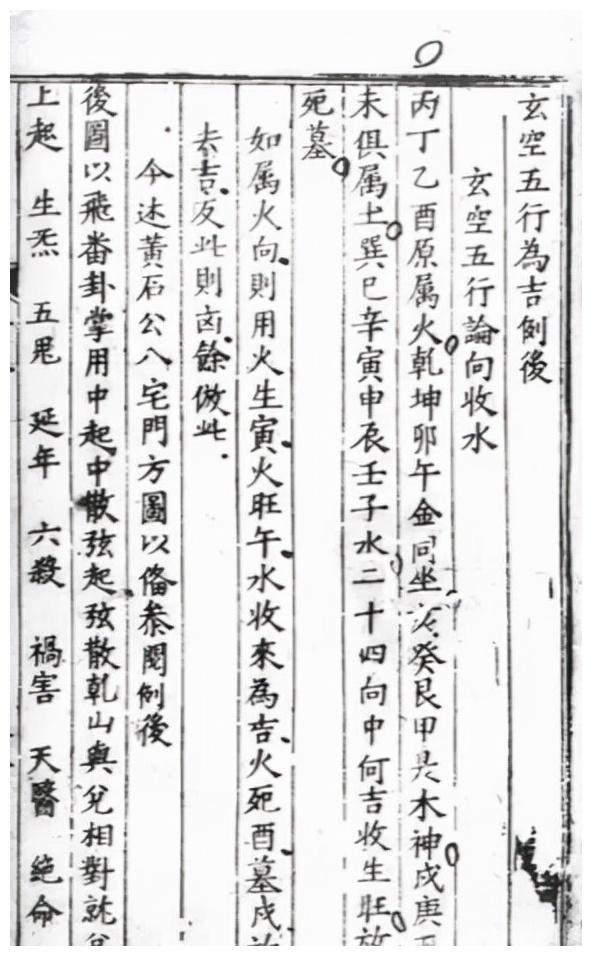 玄空五行為吉例後
玄空五行論向收水
丙丁乙酉原属火乾坤卯午金同坐亥癸艮甲是木神戌庚丑
未俱属土巽巳辛寅申辰壬子水二十四向中何吉收生旺放
死墓
如属火向則用火生寅火旺午水收來為吉火死酉墓戌放
去吉反此則凶餘倣此
今述黃石公八宅門方圖以俻叅閱例後
後圖以飛畨卦掌用中起中散弦起弦散乾山與兌相對就兌
上起 生炁 五鬼 延年 六殺 禍害 天醫 絶命